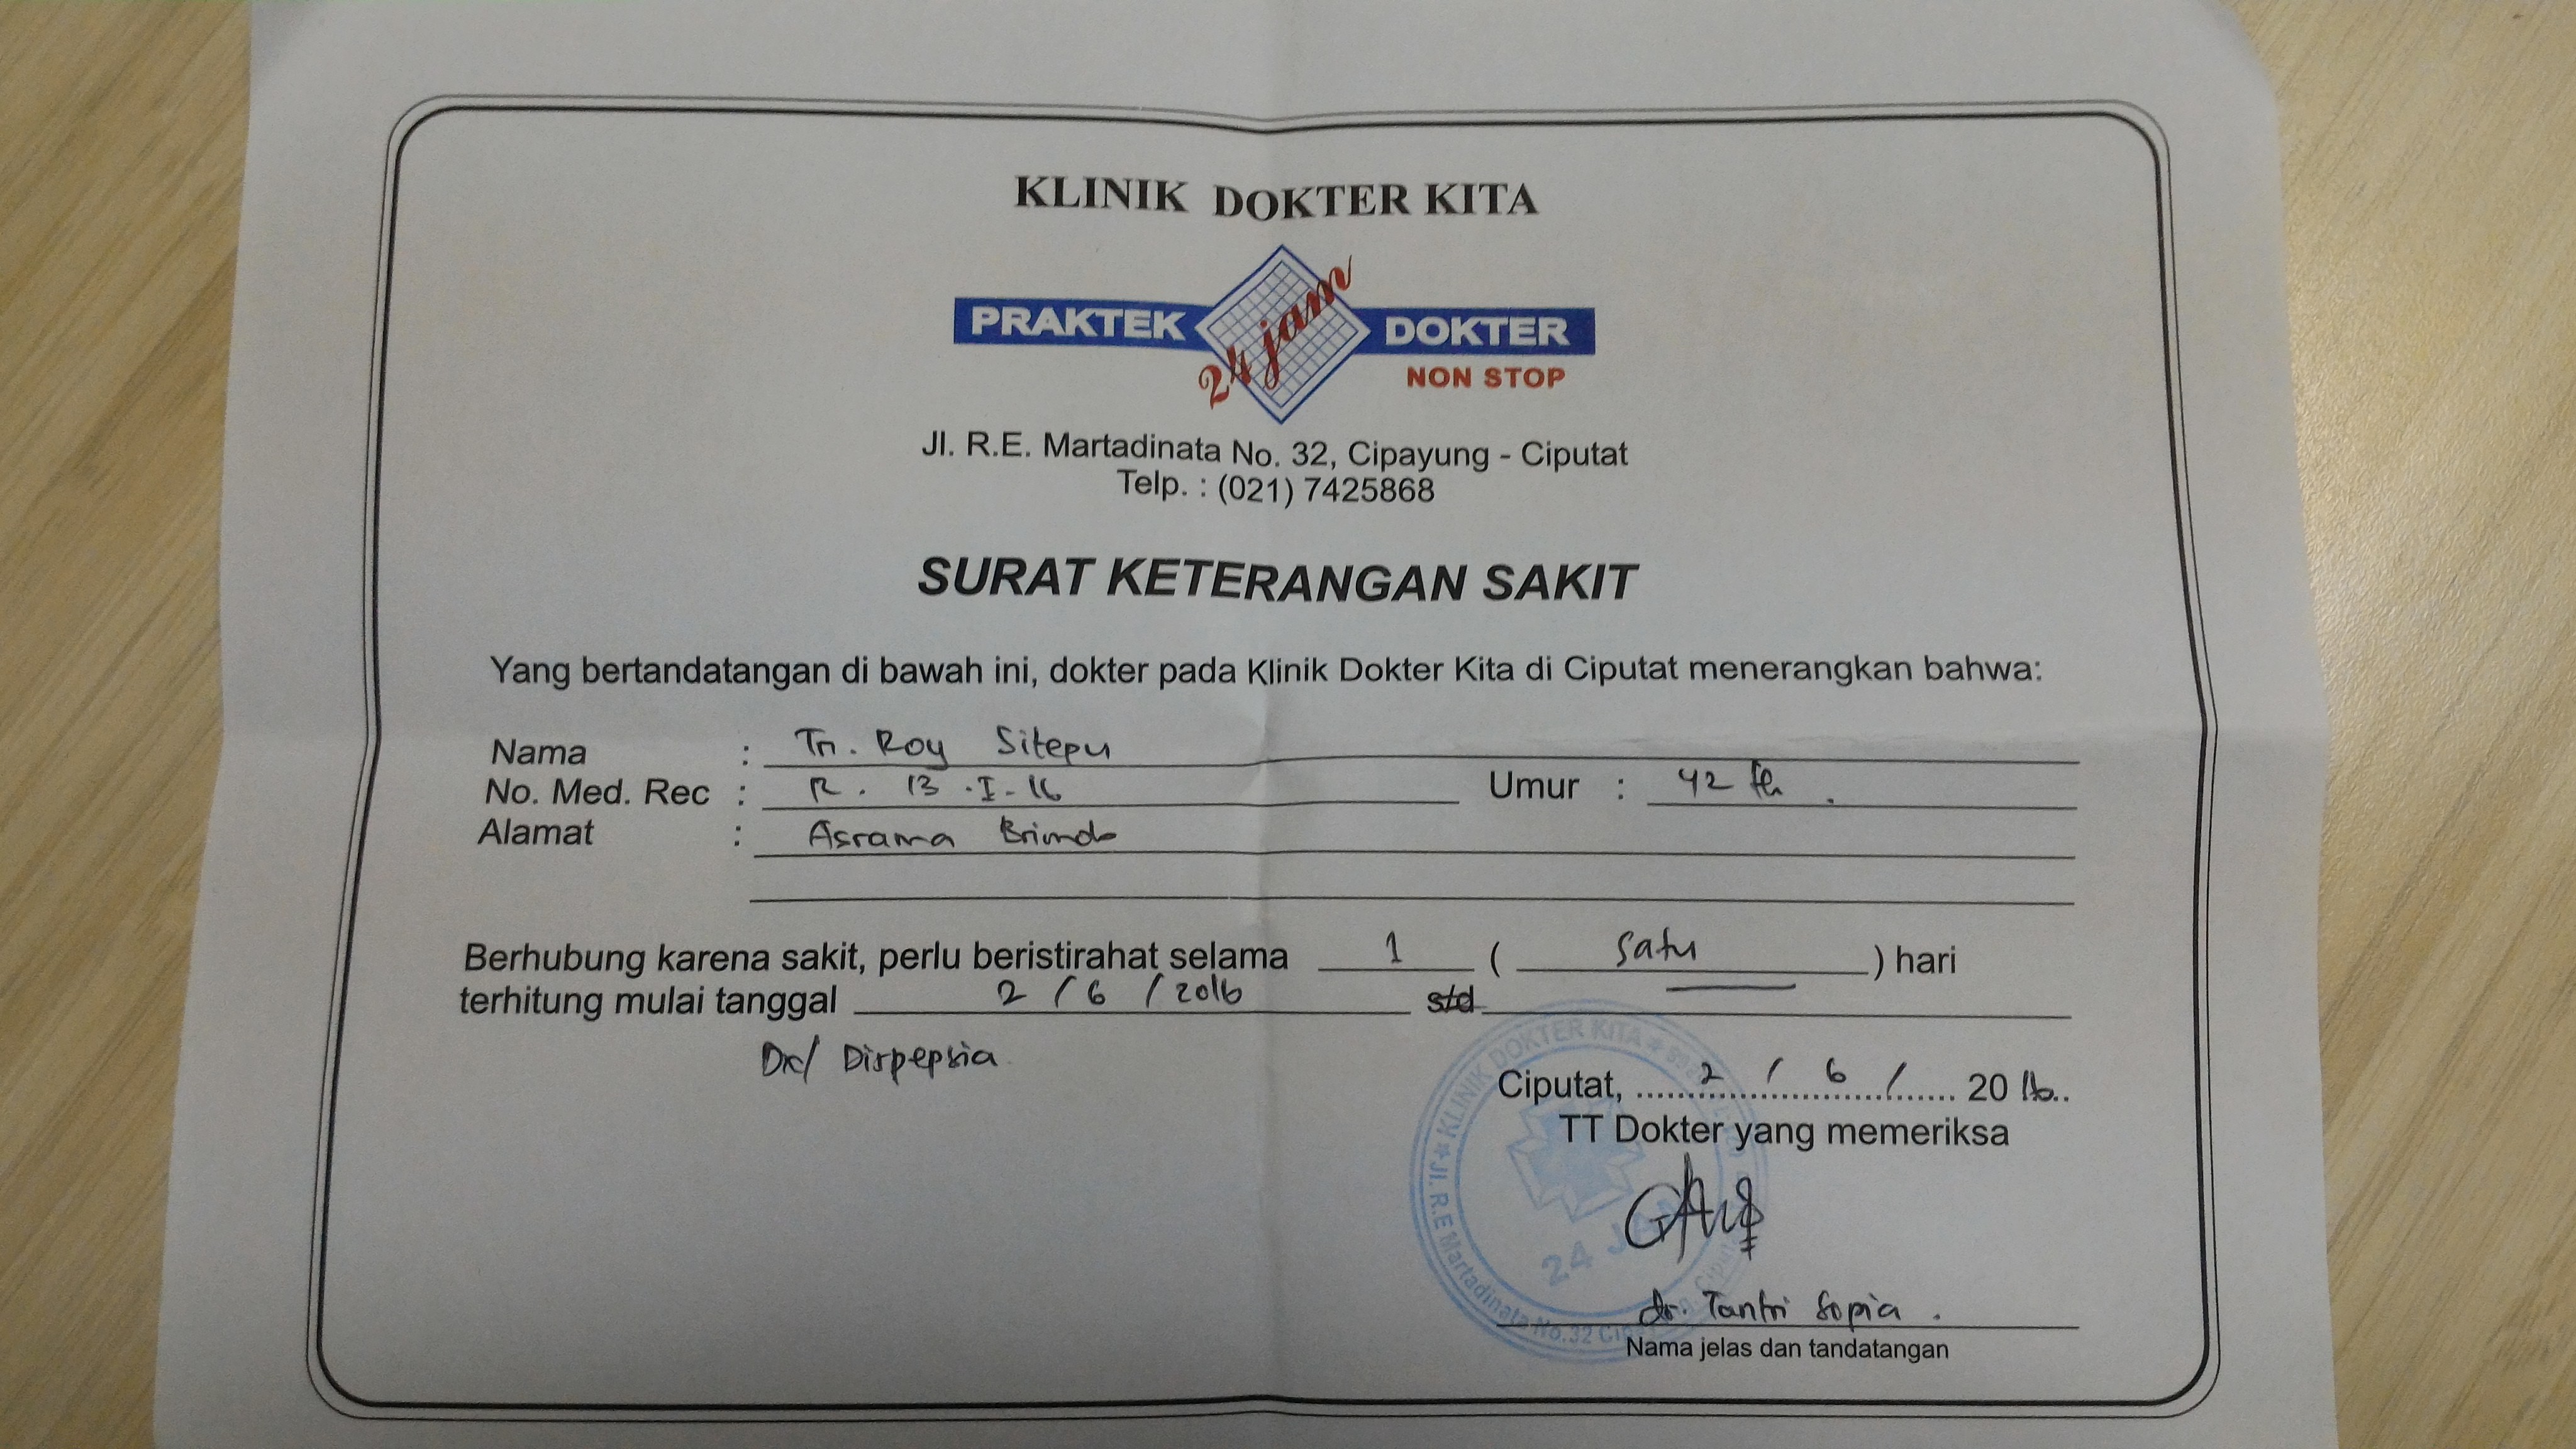 KLINIK DOKTER KITA
PRAKTEK 24 jam DOKTER
NON STOP
Jl. R.E. Martadinata No. 32, Cipayung - Ciputat
Telp. : (021) 7425868
SURAT KETERANGAN SAKIT
Yang bertandatangan di bawah ini, dokter pada Klinik Dokter Kita di Ciputat menerangkan bahwa:
Nama : Tn. Roy Sitepu
No. Med. Rec : R. 13 .I-16 Umur : 42 th.
Alamat : Asrama Brimob
Berhubung karena sakit, perlu beristirahat selama 1 ( satu ) hari
terhitung mulai tanggal 2 / 6 / 2016 s/d
Dx/ Dispepsia
Ciputat, 2 / 6 / 20 16..
TT Dokter yang memeriksa
KLINIK DOKTER KITA
Jl. R.E Martadinata No.32
24
dr. Tantri Sopia .
Nama jelas dan tandatangan